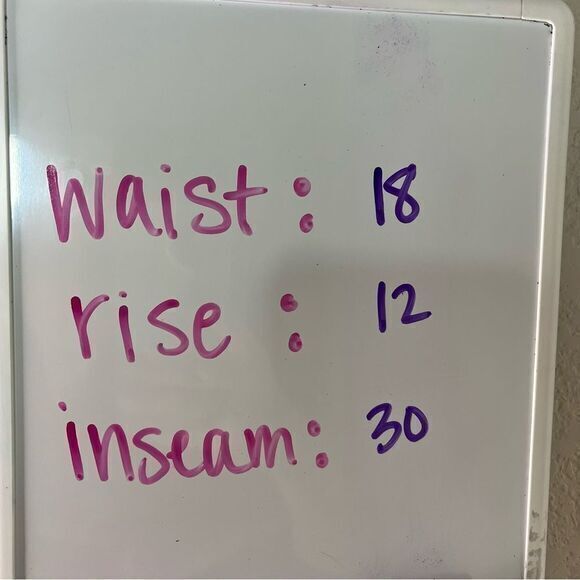 waist: 18
rise: 12
inseam: 30